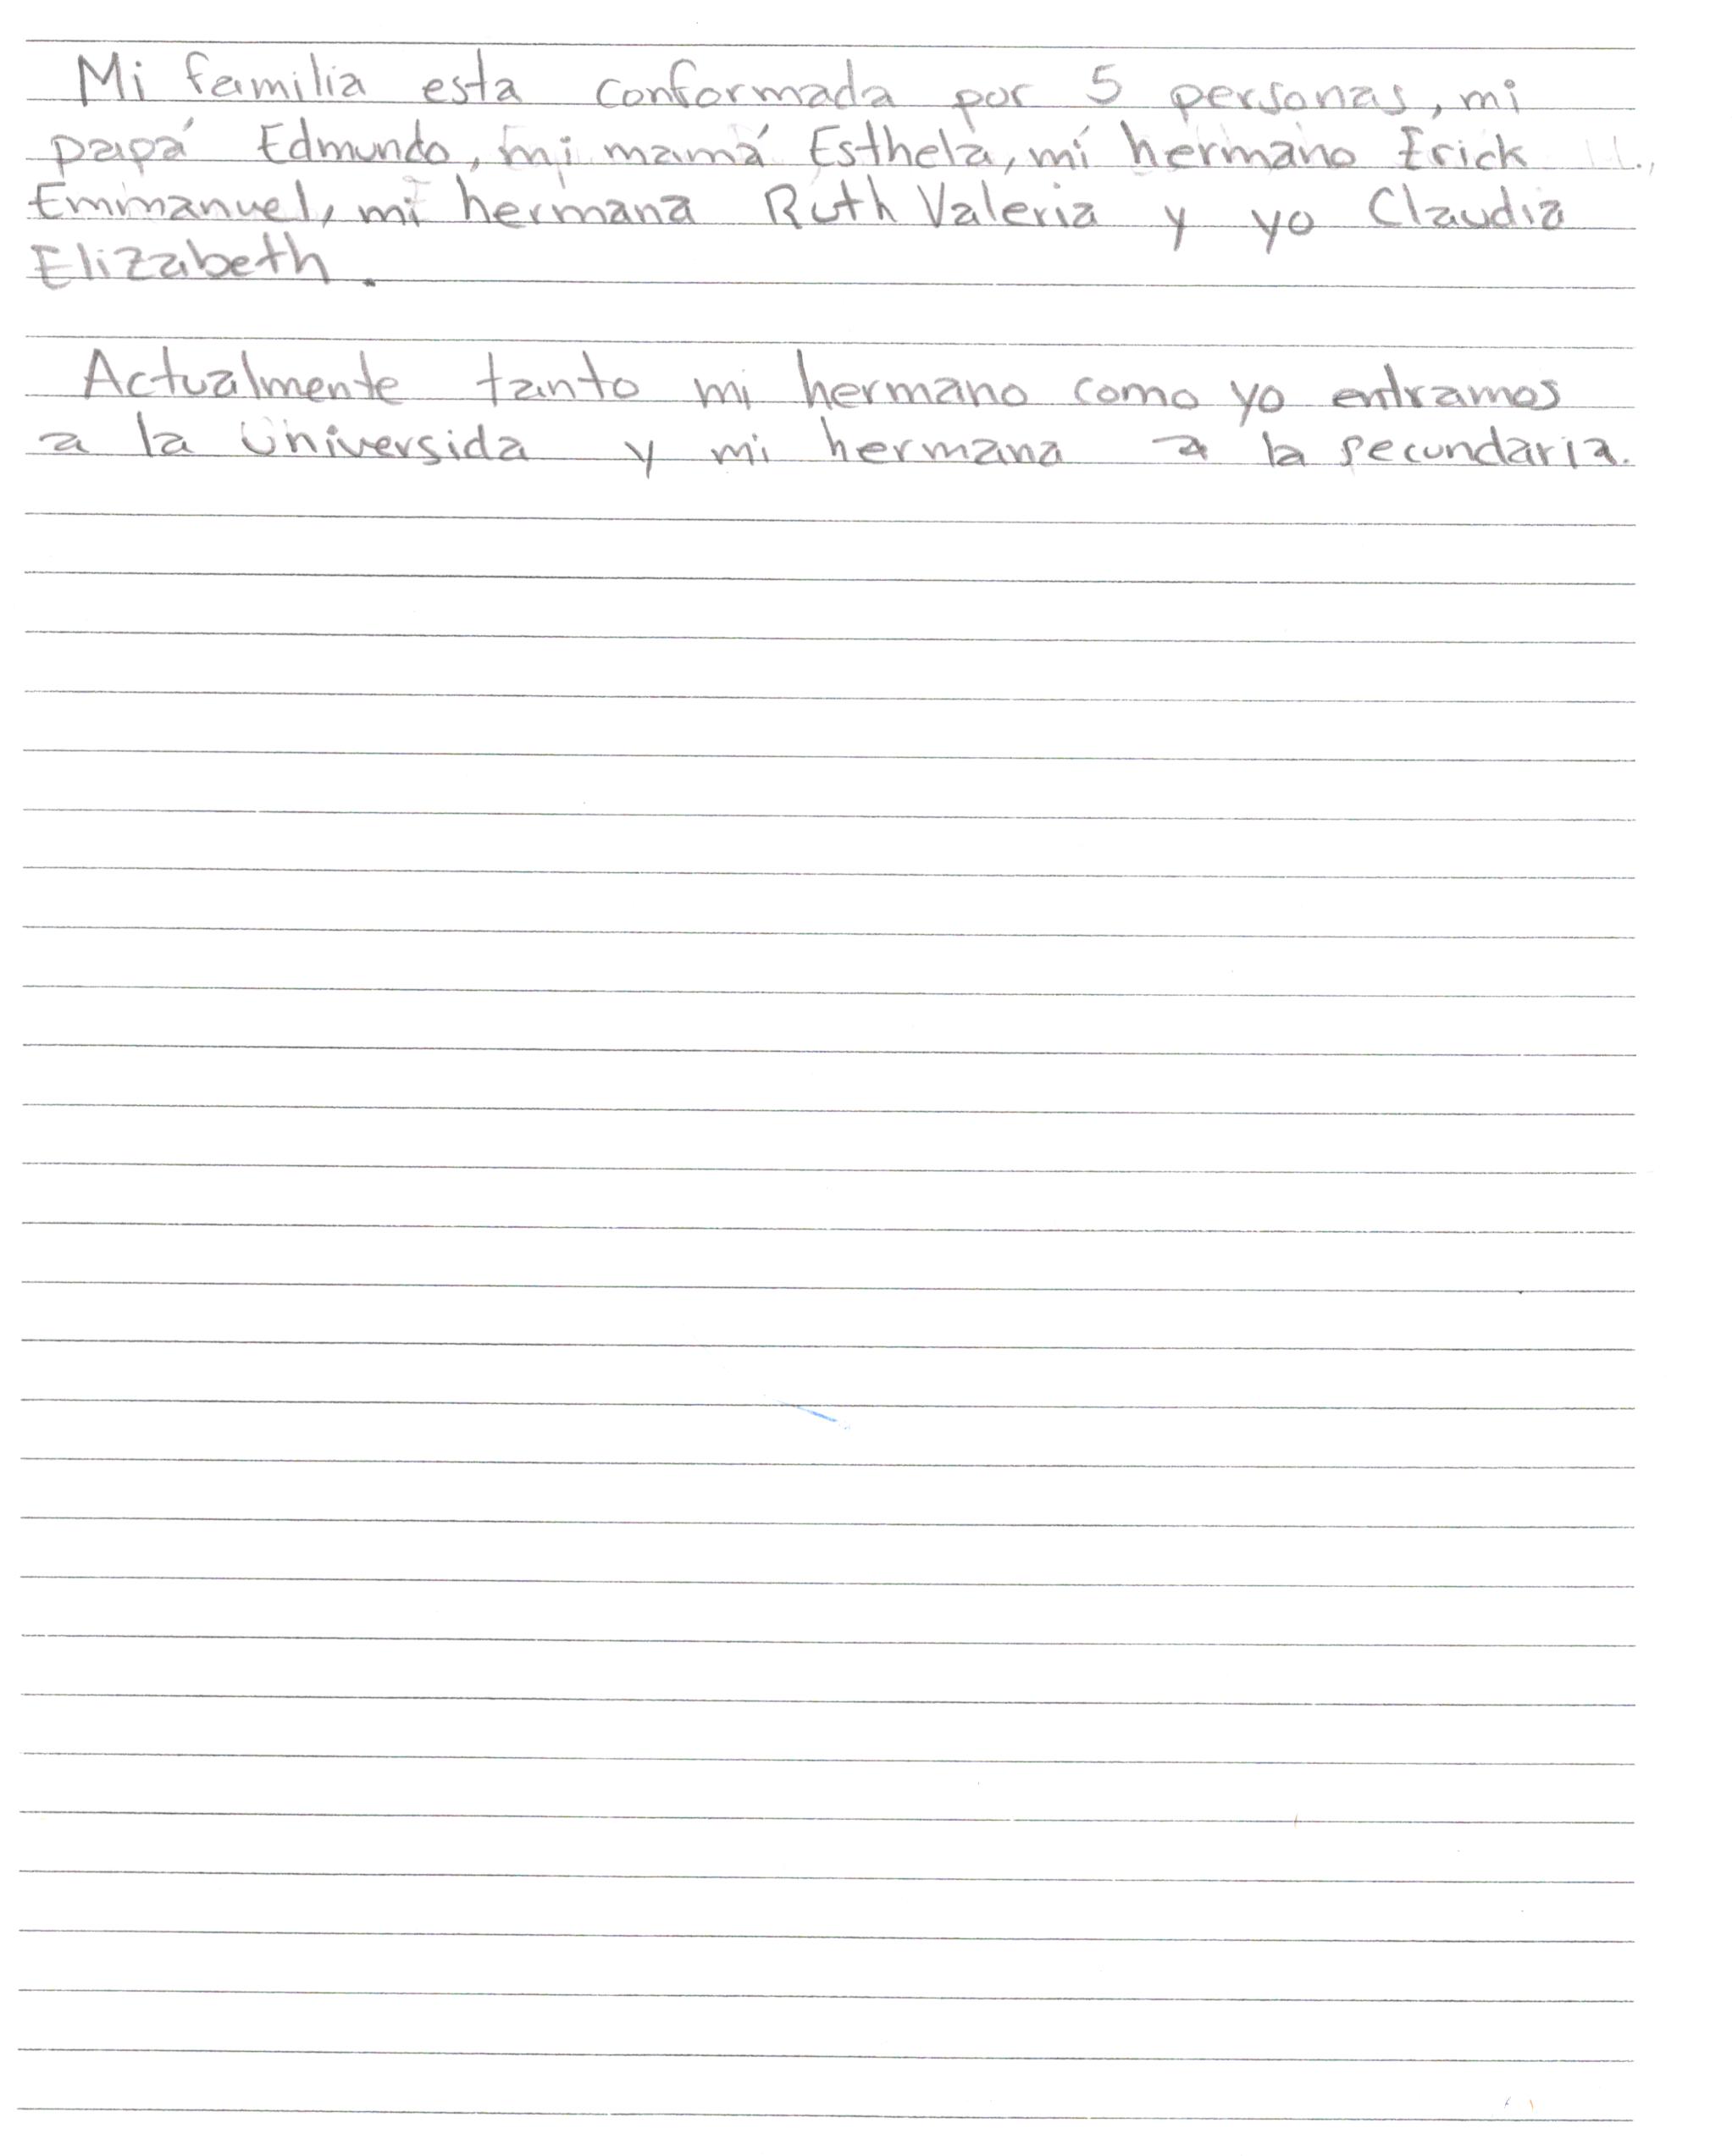 Mi familia esta conformada por 5 personas, mi
papá Edmundo, mi mamá Esthela, mi hermano Erick
Emmanuel, mi hermana Ruth Valeria y yo Claudia
Elizabeth.
Actualmente tanto mi hermano como yo entramos
a la Universida y mi hermana a la secundaria.